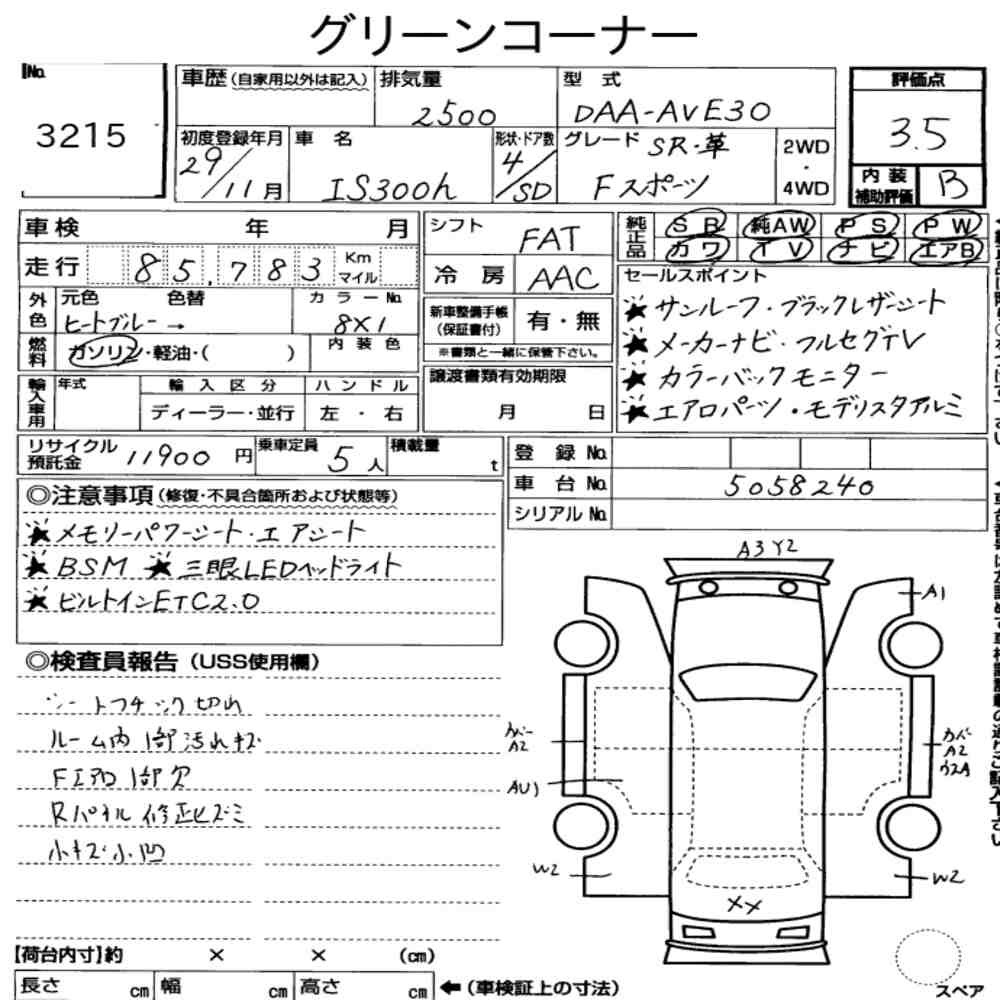 グリーンコーナー
No. 3215
車歴 (自家用以外は記入)
排気量 2500
型式 DAA-AVE30
評価点 3.5
初度登録年月 29/11月
車名 IS300h
形状・ドア数 4/SD
グレード SR・革 Fスポーツ
2WD・4WD
内装補助評価 B
車検 年 月
シフト FAT
純正品 SR 純AW PS PW
カワ TV ナビ エアB
走行 85,783 Km マイル
冷房 AAC
セールスポイント
★サンルーフ・ブラックレザーシート
★メーカーナビ・フルセグTV
★カラーバックモニター
★エアロパーツ・モデリスタアルミ
外色 元色 色替 ヒートブルー→
カラーNo. 8X1
新車整備手帳(保証書付) 有・無
※書類と一緒に保管下さい。
燃料 ガソリン・軽油・( )
内装色
輸入車用 年式 輸入区分 ハンドル
ディーラー・並行 左・右
譲渡書類有効期限
月 日
リサイクル預託金 11900円
乗車定員 5人
積載量 t
登録No.
車台No. 5058240
シリアルNo.
◎注意事項(修復・不具合箇所および状態等)
★メモリーパワーシート・エアシート
★BSM ★三眼LEDヘッドライト
★ビルトインETC2.0
◎検査員報告(USS使用欄)
シートフチック切れ
ルーム内1部汚れキズ
Fエアロ1部欠
Rパネル修正ヒズミ
小キズ小凹
A3Y2
A1
カバーA2
カバーA2
AU1
W2
W2
XX
スペア
【荷台内寸】約 × × (cm)
長さ cm 幅 cm 高さ cm ←(車検証上の寸法)